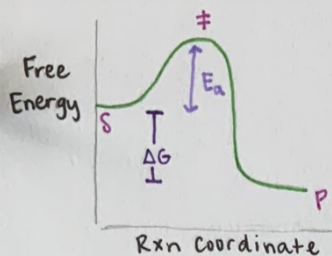 ‡
Free
Energy
Ea
S
ΔG
P
Rxn Coordinate